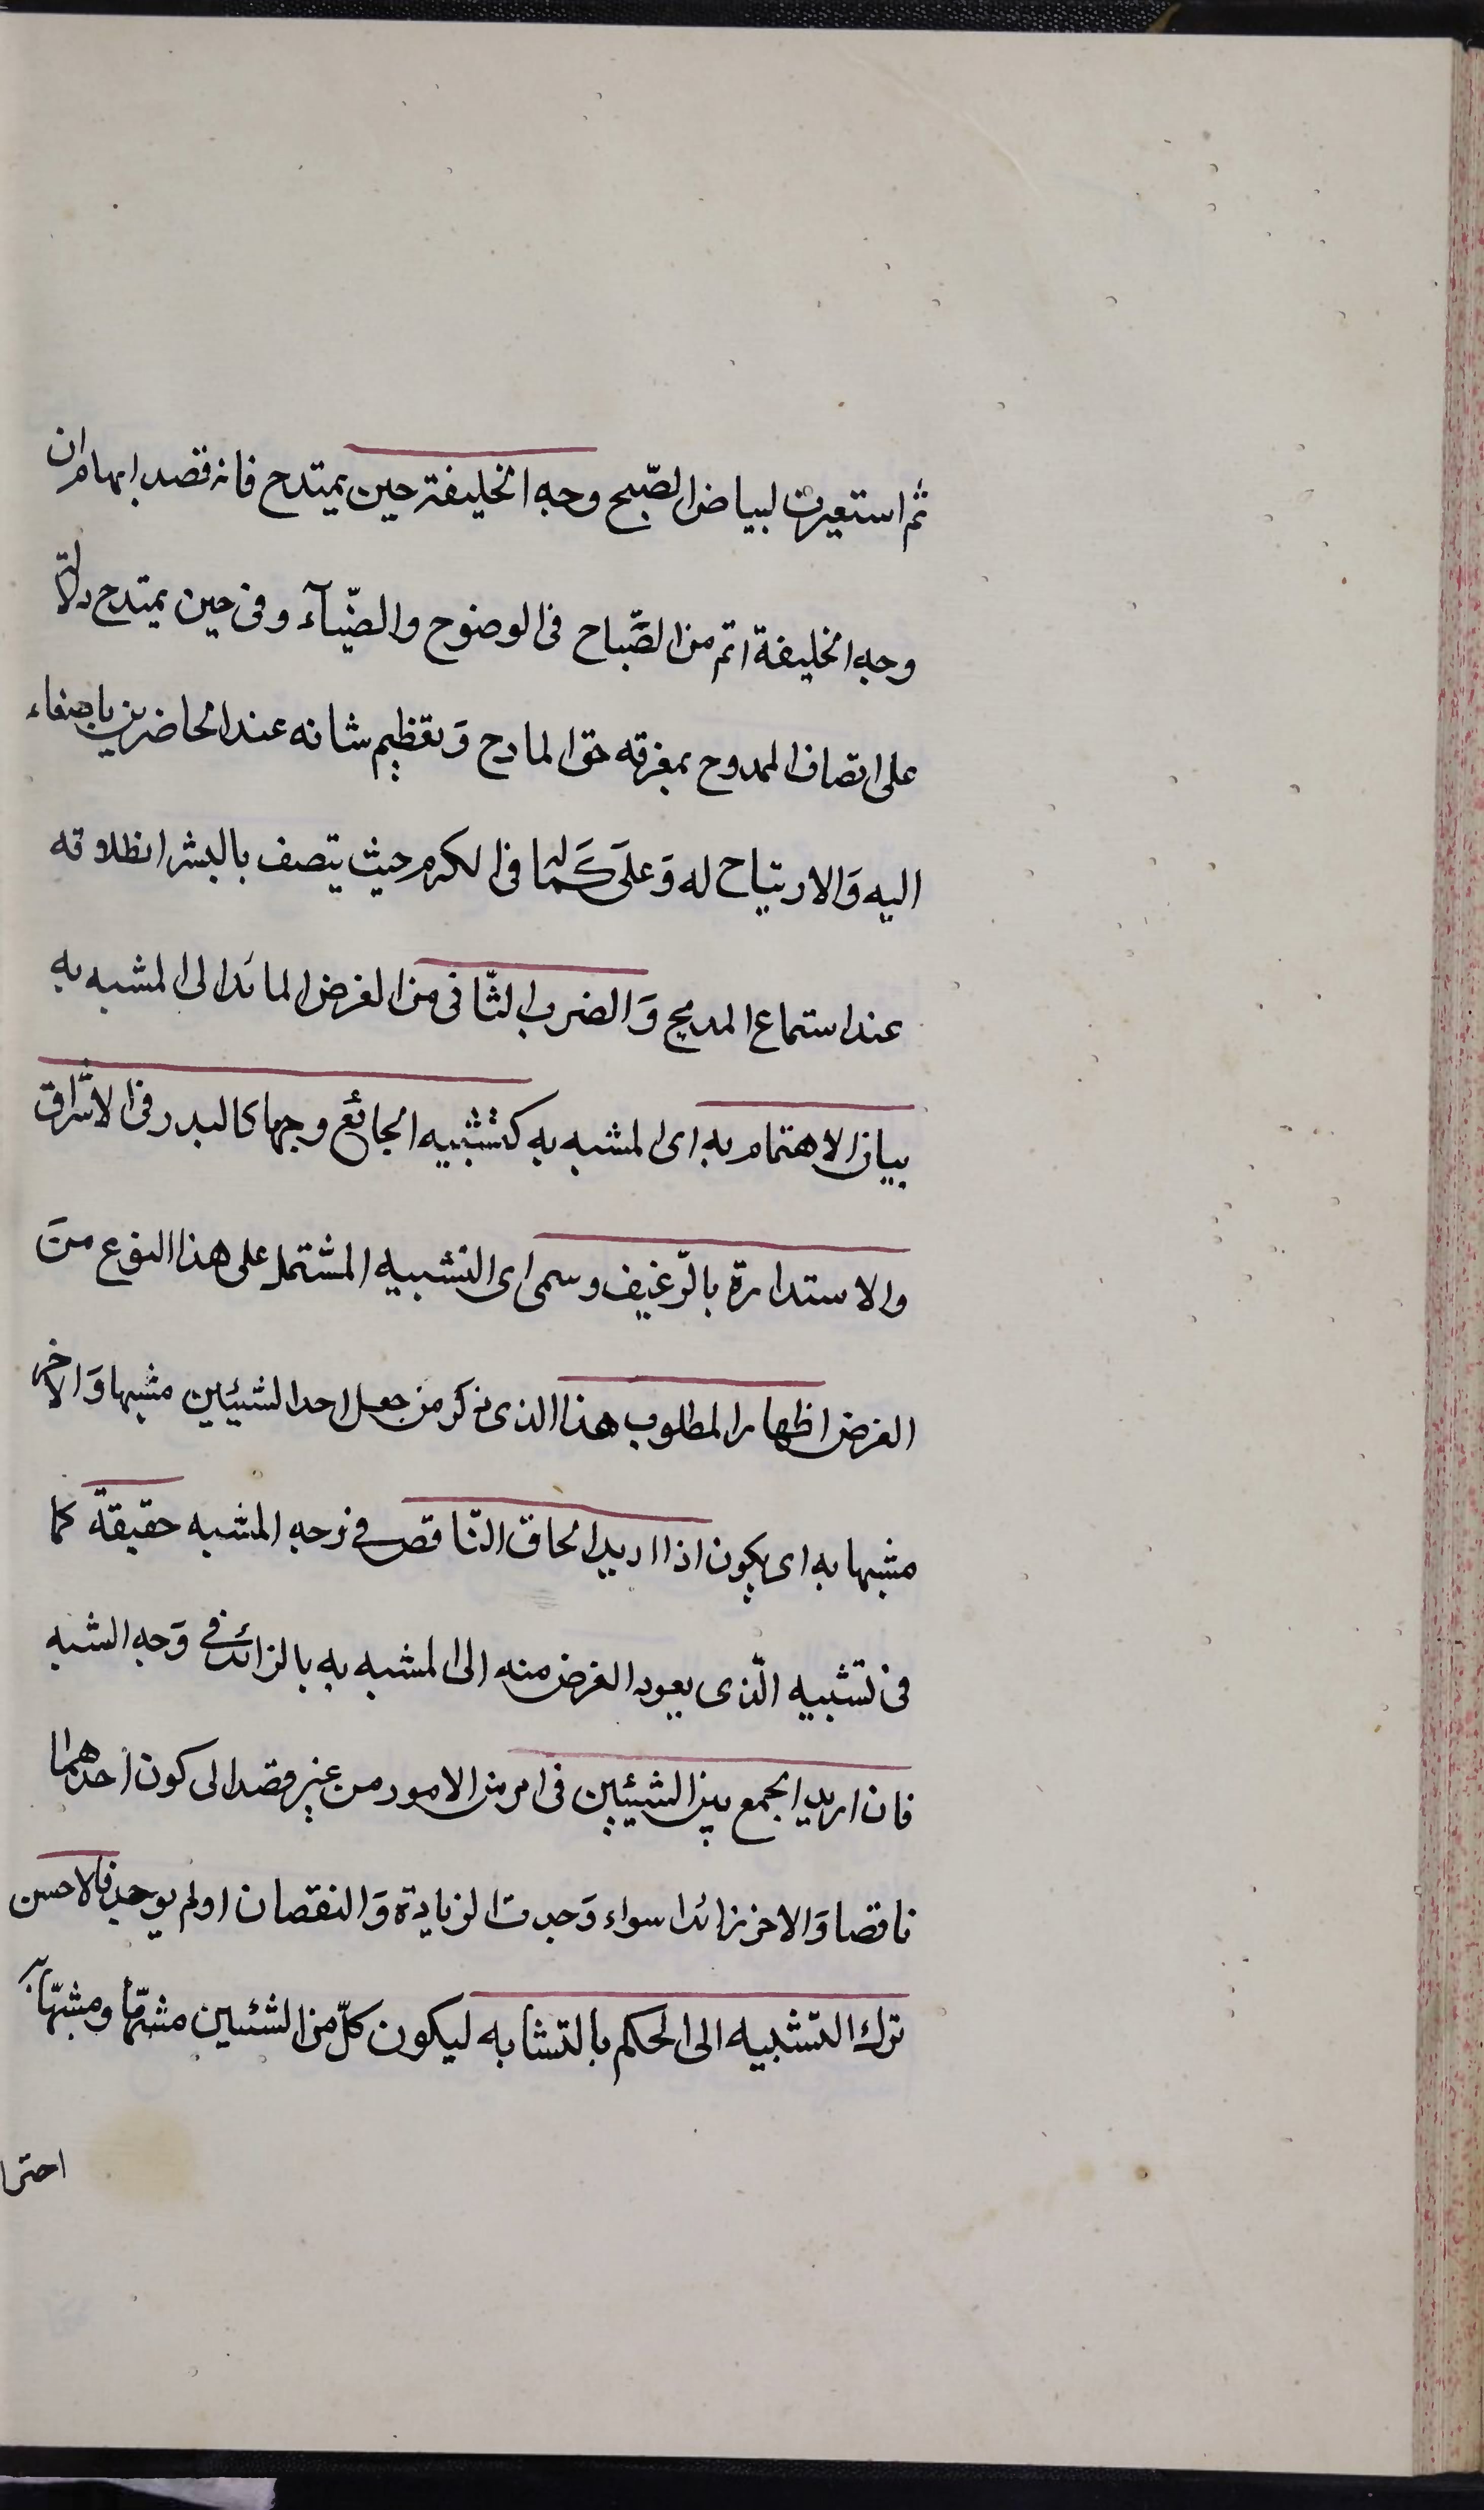 ثم استعيرت لبياض الصّبح وجه الخليفة حين يمتدح فانه قصد ايهام ان
وجه الخليفة اتم من الصَّباح فى الوضوح والضّيآء وفى حين يمتدح دلالة
على اتصاف الممدوح بمعرفه حق المادح وَتعظيم شانه عند الحاضرين باصغاء
اليه وَالارتياح له وَعلَى كَماله فى الكرم حيث يتصف بالبشر انطلاقه
عند استماع المديح وَالضرب الثّانى من الغرض المائد الى المشبه به
بيان الاهتمام به اى المشبه به كتشبيه الجائع وجها كالبدر فى الاشراق
والاستدارة بالرّغيف وسمى اى التشبيه المشتمل على هذا النوع من
الغرض اظهار المطلوب هذا الذى ذكر من جعل احد الشيئين مشبها وَالاخر
مشبها به اى يكون اذا اريد الحاق النّاقص فى وجه المشبه حقيقة كما
فى تشبيه الّذى يعود الغرض منه الى المشبه به بالزائد فى وَجه الشبه
فان اريد الجمع بين الشيئين فى امر من الامور من غير قصد الى كون احدهما
ناقصا وَالاخر زائدا سواء وَجدت الزيادة وَالنقصان اولم يوجد فالاحسن
ترك التشبيه الى الحكم بالتشابه ليكون كلّ من الشئين مشبّها ومشبّها به
احترا